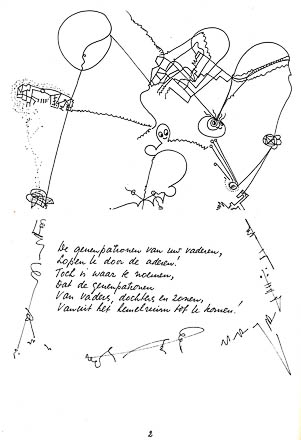 De genenpatronen van uw vaderen,
Lopen U door de aderen!
Toch is waar te noemen,
dat de genenpatronen
Van vaders, dochters en zonen,
Vanuit het hemelruim tot U komen!
2